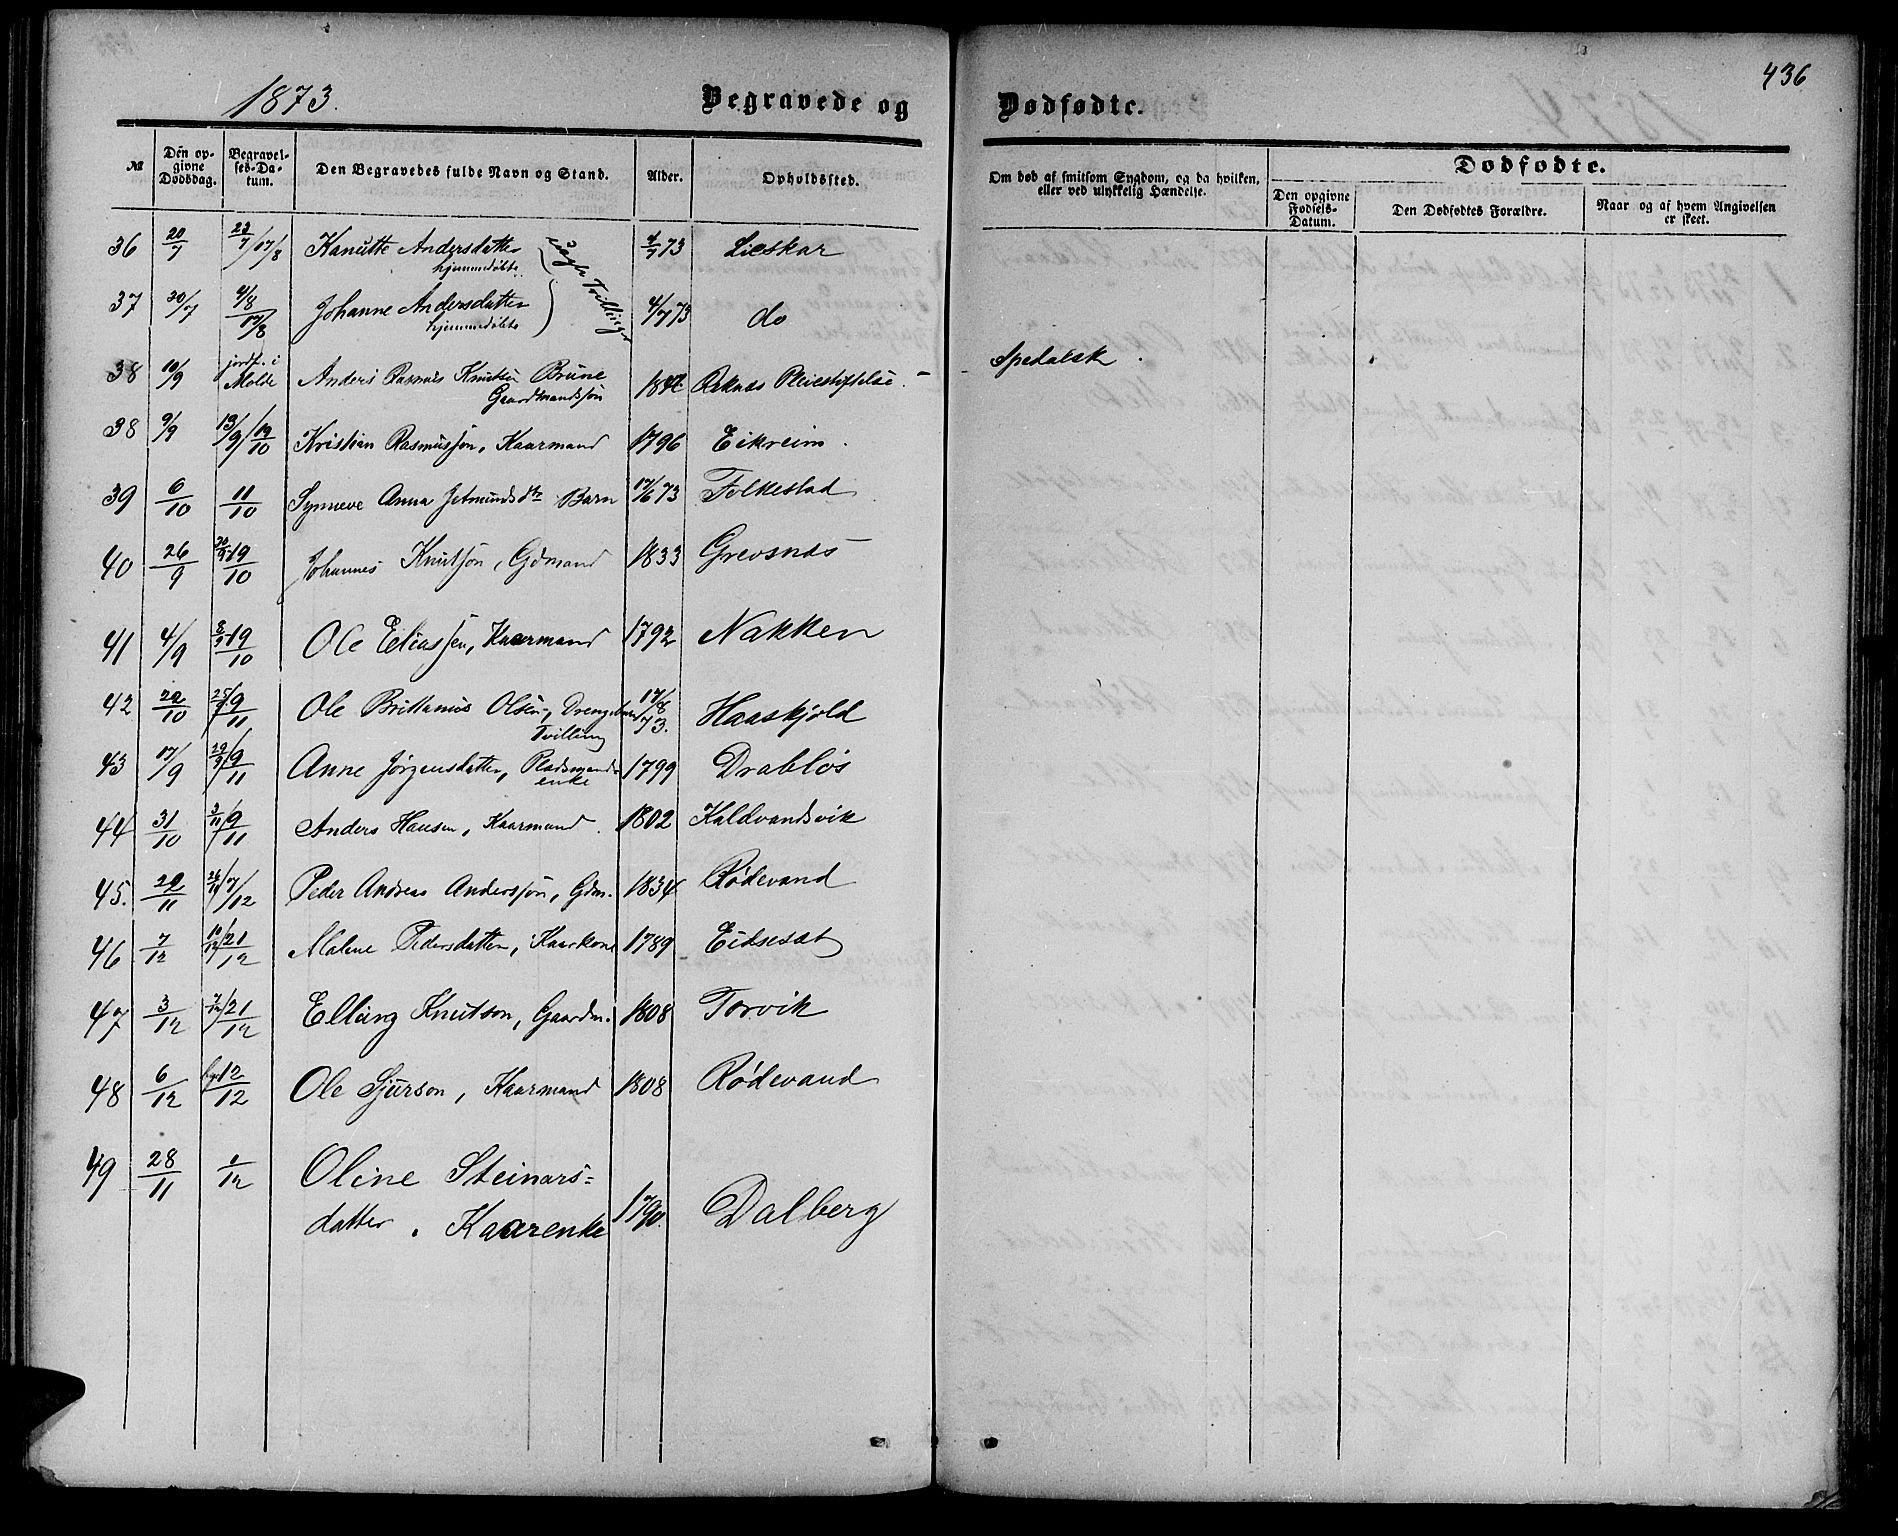 436
1873.
Begravede og Dødfødte.
№
Den opgivne Dødsdag.
Begravelses-Datum.
Den Begravedes fulde Navn og Stand.
Alder.
Opholdssted.
Om død af smitsom Sygdom, og da hvilken, eller ved ulykkelig Hændelse.
Dødfødte.
Den opgivne Fødsels-Datum.
Den Dødfødtes Forældre.
Naar og af hvem Angivelsen er skeet.
36 20/7 23/7 17/8 Kanutte Andersdatter hjemmedøbte 4/7 73 Lieskar
37 30/7 4/8 17/8 Johanne Andersdatter hjemmedøbte 4/7 73 do
Tvillinger
38 10/9 jordf. i Molde Anders Rasmus Knutsen Brune Gaardmandssøn Reknæs Pleiestiftelse. Spedalsk
38 9/9 13/9 19/10 Kristian Rasmussøn, Kaarmand 1796 Eikreim.
39 6/10 11/10 Synneve Anna Jetmundsdtr Barn 17/6 73 Folkestad
40 26/9 19/10 Johannes Knutsøn, Gdmand 1833 Grevsnæs
41 4/9 8/9 19/10 Ole Eliassen, Kaarmand 1792 Nakken
42 20/10 9/11 Ole Brittanius Olsen, Drengebarn Tvilling 17/8 73. Haaskjold
43 17/9 9/11 Anne Jørgensdatter, Pladsmands enke 1799 Drabløs
44 31/10 3/11 9/11 Anders Hansen, Kaarmand 1802 Kaldvandsvik
45. 20/11 26/11 7/12 Peder Andreas Anderssøn, Gdm. 1834 Rødevand
46 7/12 10/12 21/12 Malene Pedersdatter, Kaarkone 1789 Eidsesæt
47 3/12 7/12 21/12 Elling Knutson, Gaardm. 1808 Torvik
48 6/12 12/12 Ole Sjurson, Kaarmand 1808 Rødevand
49 28/11 1/12 Oline Steinars=
datter. Kaarenke 1790. Dalberg